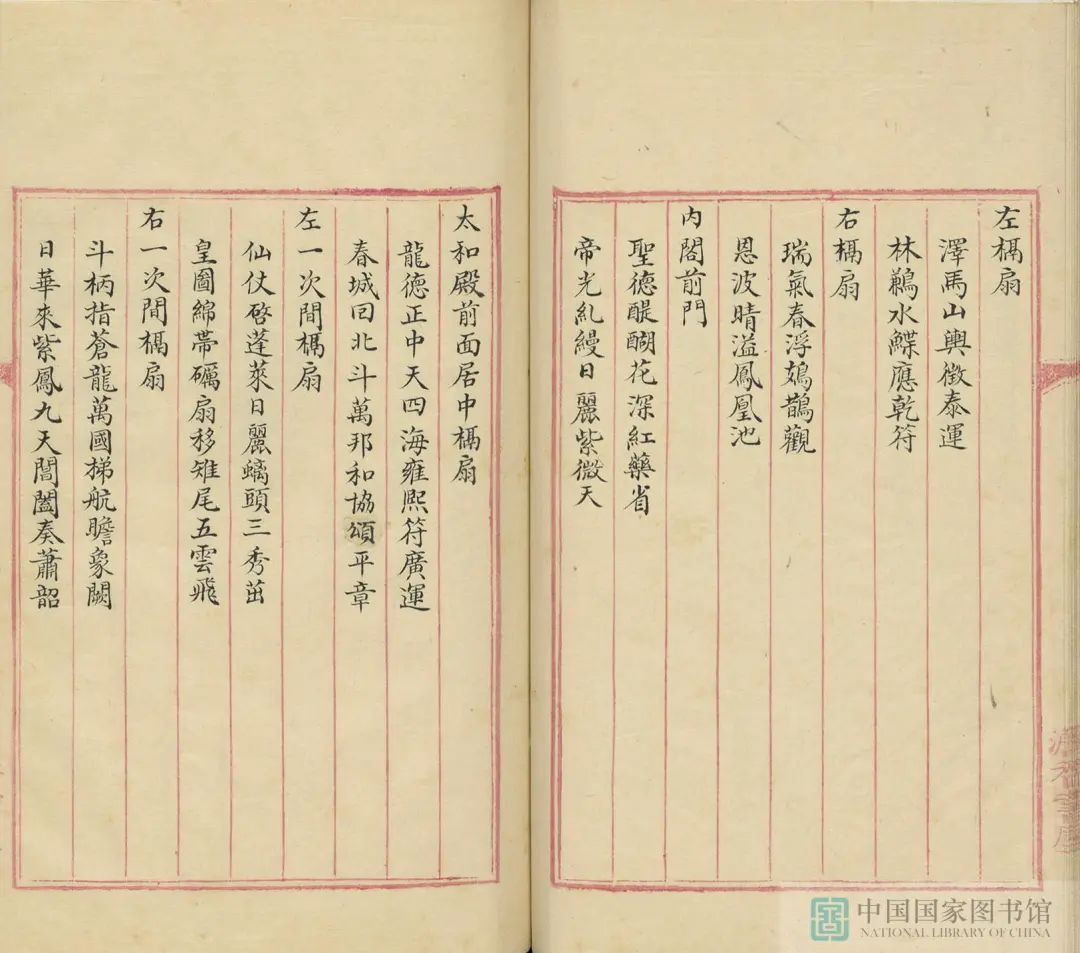 左槅扇
澤馬山輿徵泰運
林鶼水鰈應乾符
右槅扇
瑞氣春浮鳷鵲觀
恩波晴溢鳳凰池
内閣前門
聖德醍醐花深紅藥省
帝光糺縵日麗紫微天
太和殿前面居中槅扇
龍德正中天四海雍熙符廣運
春城回北斗萬邦和協頌平章
左一次間槅扇
仙仗啓蓬萊日麗螭頭三秀茁
皇圖綿帶礪扇移雉尾五雲飛
右一次間槅扇
斗柄指蒼龍萬國梯航瞻象闕
日華來紫鳳九天閶闔奏蕭韶
中国国家图书馆
NATIONAL LIBRARY OF CHINA